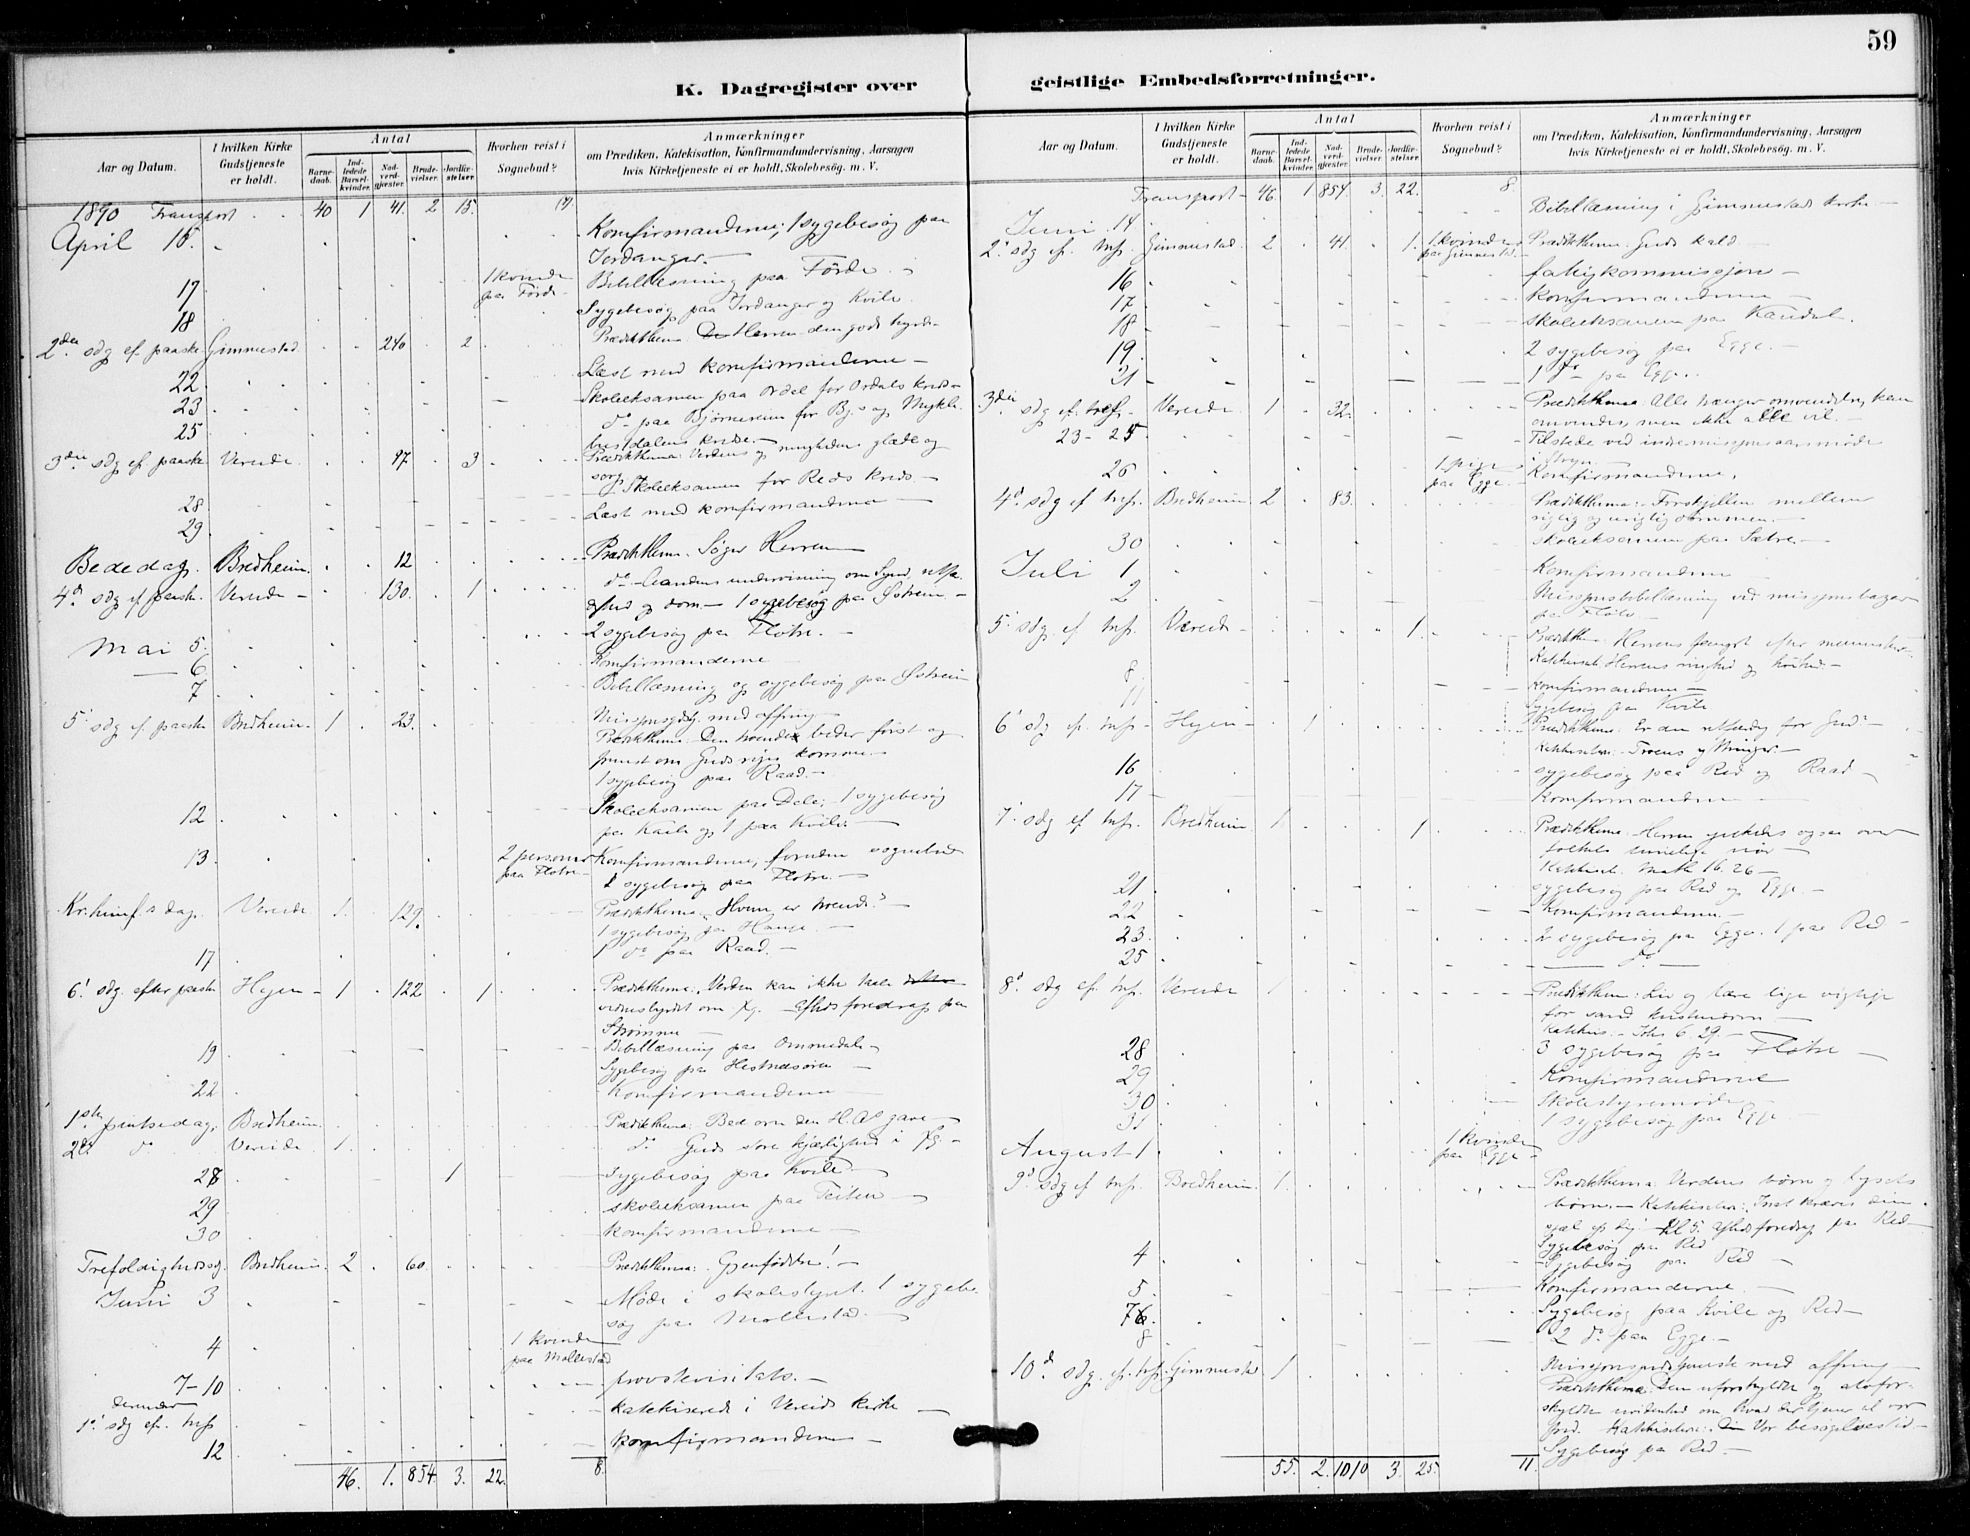 59
K. Dagregister over geistlige Embedsforretninger.
Aar og Datum.
I hvilken Kirke Gudstjeneste er holdt.
Antal
Barnedaab.
Indledede Barselkvinder.
Nadverdgjester.
Brudevielser.
Jordfæstelser.
Hvorhen reist i Sognebud?
Anmærkninger
om Prædiken, Katekisation, Konfirmandundervisning, Aarsagen
hvis Kirketjeneste ei er holdt, Skolebesög. m. V.
1890 Transport 40 1 41. 2 15.
April 15. Konfirmanderne; 1 sygebesøg paa
Jordanger. —
17 1 kvinde paa Förde Bibellæsning paa Förde. —
18 Sygebesøg paa Jordanger og Kvile.
2den sdg ef. paaske Gimmestad. 240 2 Prædikthema Herren den gode hyrde
22 Læst med konfirmanderne —
23 Skoleeksamen paa Ordal for Ordals kreds —
25 do paa Bjørnereim for Bj.s og Mykle-
bustdalens kredse. —
3die sdg ef. paaske Vereide. 97 3 Prædikthema: Verdens og glæde og
sorg
28 Skoleeksamen for Reds kreds. —
29 Læst med konfirmanderne —
Bededag. Bredheim. 12 Prædikthema. Søger Herren
4d sdg ef. paaske Vereide — 130. 1 do Aandens undervisning om Synd,
og dom — 1 sygebesøg paa
Mai 5. 2 sygebesøg paa Flötre. —
6 Konfirmanderne
7 Bibellæsning og sygebesøg paa
5' sdg ef. paaske Bredheim. 1 23. med offring —
Prædikthema. Den beder først og
fremst om Guds riges komme —
1 sygebesøg paa Raad. —
12 Skoleeksamen paa Dele; 1 sygebesøg
paa og 1 paa Kvile. —
13 2 personer paa Flötre — Konfirmanderne, foruden sognebud
2 sygebesøg paa Flötre. —
Kr. himf.s dag. Vereide 1. 129. Prædikthema „Hvem er troende?
1 sygebesøg paa Hauge. —
17 1 do paa Raad. —
6' sdg. efter paaske Hyen — 1 122 1 Prædikthema: Verden kan ikke taale
vidnesbyrdet om Xg. — afholdsforedrag paa
Straumme —
19 Bibellæsning paa Ommedal —
Sygebesøg paa Hestnesøren —
22 Konfirmanderne
1ste pintsedag. Bredheim. Prædikthema: Bed om den H. As gave —
2den do Vereide. 1. do Guds store kjærlighed i Xg. —
28 1 Sygebesøg paa Kvile —
29 skoleeksamen paa Teiten —
30 konfirmanderne —
Trefoldighedssdg. Bredheim 2 60. Prædikthema: Gjenfödtelse! —
Juni 3 Møde i skolestyret. 1 sygebe-
søg paa Mollestad. —
4 1 kvinde paa Mollestad
7-10 provstevisitats. —
derunder
1' sdg ef. trefs katekiserede i Vereide kirke —
12 konfirmanderne —
46. 1. 854. 3. 22. 8.
Aar og Datum.
I hvilken Kirke Gudstjeneste er holdt.
Antal
Barnedaab.
Indledede Barselkvinder.
Nadverdgjester.
Brudevielser.
Jordfæstelser.
Hvorhen reist i Sognebud?
Anmærkninger
om Prædiken, Katekisation, Konfirmandundervisning, Aarsagen
hvis Kirketjeneste ei er holdt, Skolebesög. m. V.
Transport — 46. 1 854. 3. 22. 8.
Juni 14 Bibellæsning i Gimmestad kirke —
2' sdg ef. trefs. Gimmestad. 2 41. 1. 1 kvinde paa Gimmestad — Prædikthema. Guds kald —
16 fattigkommissjon —
17 konfirmanderne —
18 skoleeksamen paa Kandal.
19. 2 sygebesøg paa Egge. —
21 1 do paa Egge.
3die sdg ef. trefs. Vereide 1 32. Prædikthema: Alle trænger omvendelse, kan
omvendes, men ikke alle vil. —
23-25 Tilstede ved indremissjonsaarsmøde
i Stryn —
26 1 pige paa Egge — Konfirmanderne.
4d sdg ef trefs. Bredheim 2 83. Prædikthema: Forskjellen mellem
rigtig og urigtig dømmen. —
30 skoleeksamen paa Sætre. —
Juli 1 Konfirmanderne —
2 Missjonsbibellæsning ved missjonsbazar
paa Flötre. —
5' sdg. ef trefs. Vereide — 1. Prædikthema Herrens fangst efter mennesker.
Katekiset: Herrens ringhed og höihed —
8 konfirmanderne —
11 sygebesøg paa Kvile
6' sdg. ef. trefs. Hyen — 1 Prædikthema. Er du retfærdig for Gud? —
Katekiseret: Troens —
16 sygebesøg paa Red og Raad —
17 Konfirmanderne —
7' sdg ef trefs. Bredheim 1 1 Prædikthema. Herren ynkedes ogsaa over
folkets timelige nöd —
Katekiset. Math 16. 26 —
21 sygebesøg paa Red og Egge. —
22 Konfirmanderne. —
23. 2 sygebesøg paa Egge. 1 paa Red —
25 do —
8d sdg ef. trefs. Vereide 1 Prædikthema: Liv og lære lige vigtige
for sand kristendom —
Katekis. — Joh 6. 29. —
28 3 sygebesøg paa Flötre —
29 Konfirmanderne
30 skolestyremöde —
31 1 sygebesøg paa Egge —
August 1 1 kvinde paa Egge —
9d sdg ef trefs. Bredheim. 1. Prædikthema: Verdens børn og lysets
børn. — Katekiseret:
afholdsforedrag paa Red —
Sygebesøg paa Red
4 Sygebesøg paa Red —
5. Konfirmanderne. —
76. Sygebesøg paa Kvile og Red —
8 2 do paa Egge. —
10d sdg. ef. trefs. Gimmestad 1 Missjonsgudstjeneste med offring —
Prædikthema: Den uforskyldte og
uvidenhed om hvad der tjener til vor
fred. Katekiseret: Vor besøgelsestid —
Sygebesøg paa Red —
55. 2. 1010 3. 25. 11.